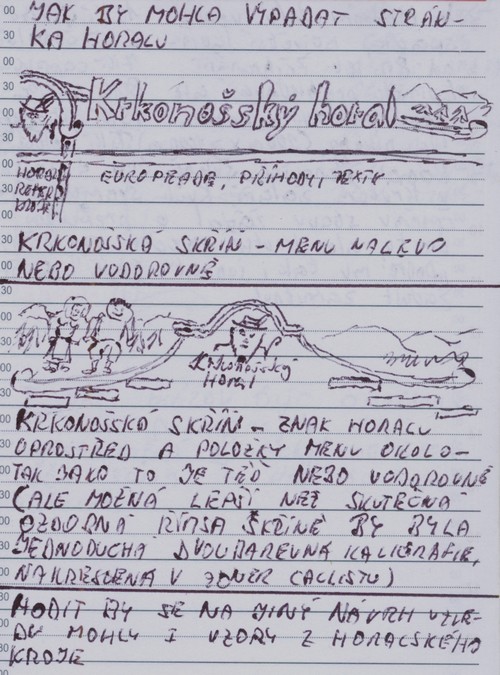 JAK BY MOHLA VYPADAT STRÁN-
KA HORALU
Krkonošský horal
HORAL
EUROPEADE, PŘÍHODY, TEXTY
KRKONOŠSKÁ SKŘÍŇ - MENU NALEVO
NEBO VODOROVNĚ
Krkonošský
Horal
KRKONOŠSKÁ SKŘÍŇ - ZNAK HORALU
OPROSTŘED A POLOŽKY MENU OKOLO -
TAK JAKO TO JE TEĎ NEBO VODOROVNĚ
(ALE MOŽNÁ LEPŠÍ NEŽ SKUTEČNÁ
OZDOBNÁ ŘÍMSA SKŘÍNĚ BY BYLA
JEDNODUCHÁ DVOUBAREVNÁ KALIGRAFIE,
NAKRESLENÁ V ZONER CALLISTU)
HODIT BY SE NA JINÝ NÁVRH VZHLE-
DU MOHLY I VZORY Z HORALSKÉHO
KROJE